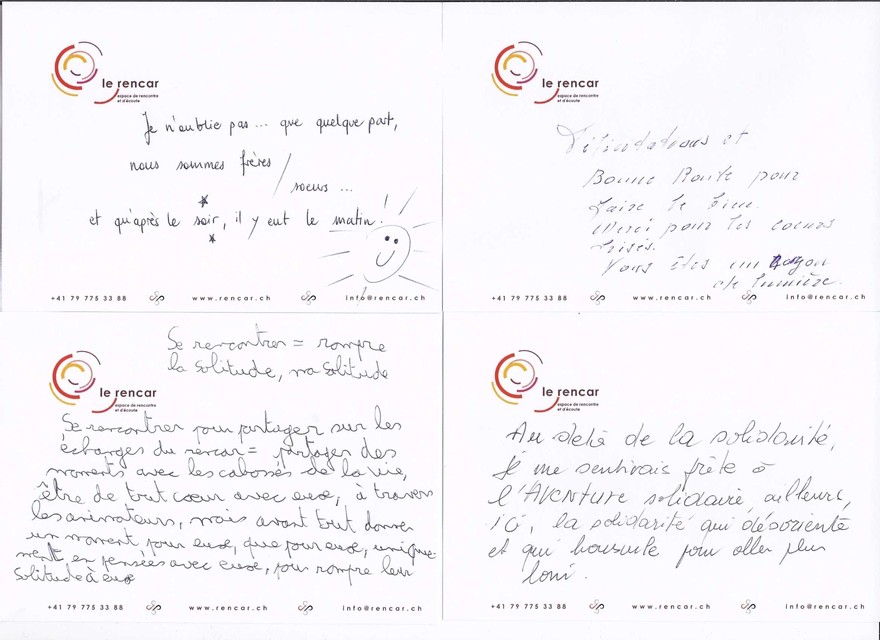 le rencar
espace de rencontre
et d'écoute
Je n'oublie pas ... que quelque part,
nous sommes frères /
soeurs ...
et qu'après le soir, il y eut le matin !
+41 79 775 33 88 www.rencar.ch info@rencar.ch
le rencar
espace de rencontre
et d'écoute
Félicitations et
Bonne Route pour
faire le bien.
Merci pour les coeurs
brisés.
Vous êtes un Rayon
de lumière.
+41 79 775 33 88 www.rencar.ch info@rencar.ch
Se rencontrer = rompre
la solitude, ma solitude
le rencar
espace de rencontre
et d'écoute
Se rencontrer pour partager sur les
échanges du rencar = partager des
moments avec les cabossés de la vie,
être de tout cœur avec eux, à travers
les animateurs, mais avant tout donner
un moment pour eux, que pour eux, unique-
ment en pensées avec eux, pour rompre leur
solitude à eux
+41 79 775 33 88 www.rencar.ch info@rencar.ch
le rencar
espace de rencontre
et d'écoute
Au delà de la solidarité,
je me sentirais prête à
l'AVENTURE solidaire, ailleurs,
ici, la solidarité qui désoriente
et qui bouscule pour aller plus
loin.
+41 79 775 33 88 www.rencar.ch info@rencar.ch